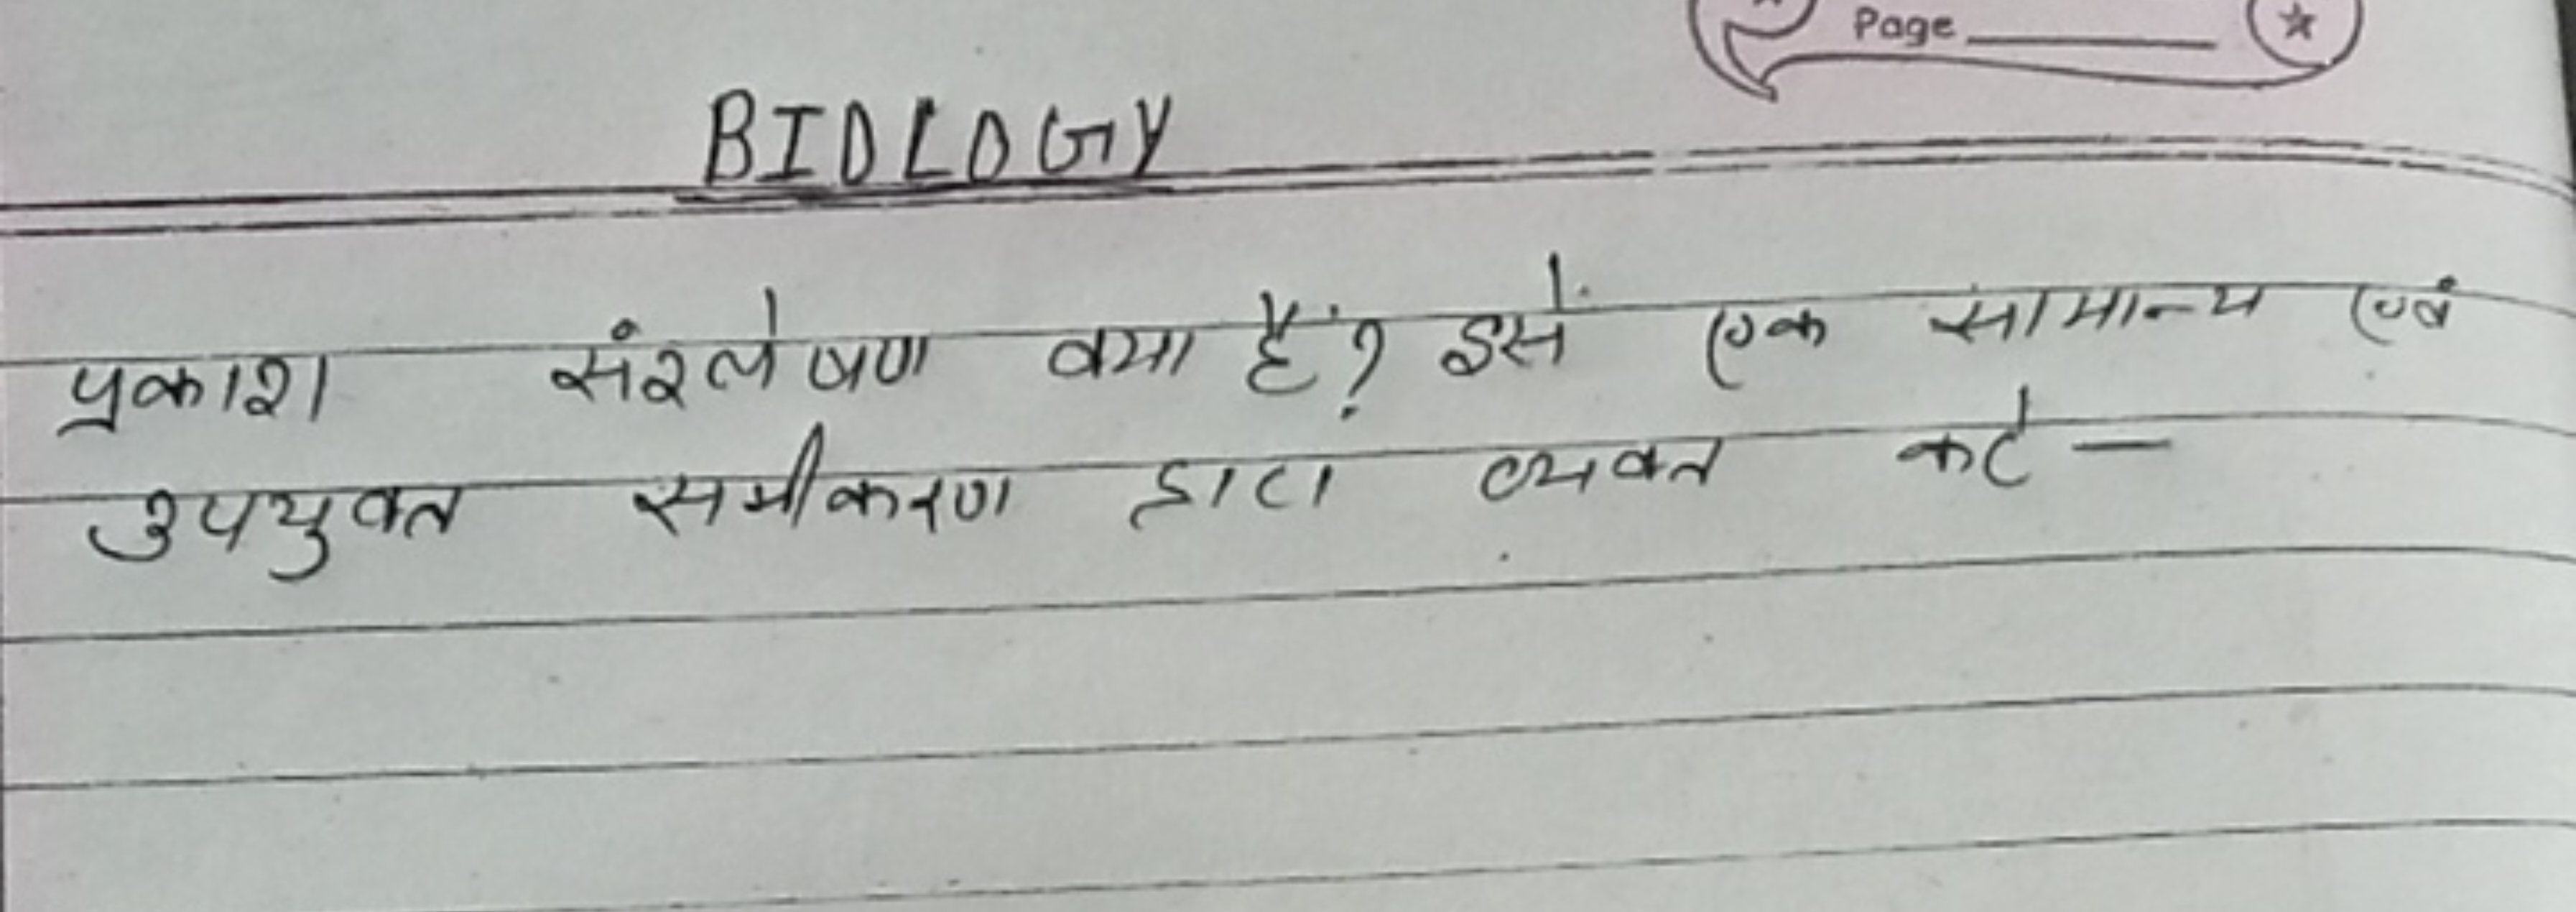 Page
BIOLOGY
प्रकाश संश्लेषण क्या हैं? इसें एक सामान्य एवं
उपयुक्त समीकरण द्वारा व्यक्त करे —